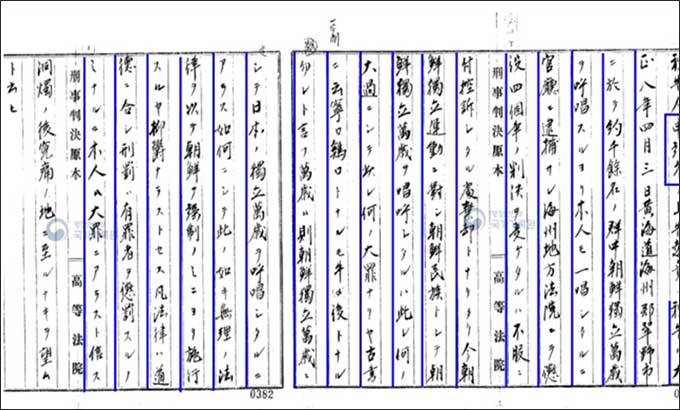 正八年四月三日黄海道海州郡翠野市
ニ於テ約千餘名ノ群中朝鮮獨立萬歳
ヲ呼唱スルヨリ本人モ一唱シタルニ
官廳ニ逮捕サレ海州地方法院ニテ懲
役四個年ノ判決ヲ受ケタルハ不服ニ
刑事判決原本 高等法院
付控訴シタル處棄却トナリタリ今朝
鮮獨立運動ニ對シ朝鮮民族トシテ朝
鮮獨立萬歳ヲ唱呼シタルハ此レ何ノ
大過ニシテ何ノ大罪ナリヤ古書
ニ云寧ロ鶏口トナルモ牛後トナル
勿レト吾ノ萬歳ハ則朝鮮獨立萬歳ニ
シテ日本ノ獨立萬歳ヲ呼唱シタルニ
アラス如何ニシテ此ノ如キ無理ノ法
律ヲ以テ朝鮮ヲ強制ノミニヨリ施行
スルヤ抑欝ナラストセス凡法律ハ道
徳ニ合シ刑罰ハ有罪者ヲ懲罰スルノ
ミナルニ本人ハ大罪ニアラスト信ス
刑事判決原本 高等法院
洞燭ノ後寃痛ノ地ニ至ルナキヲ望ム
ト云ヒ
0382